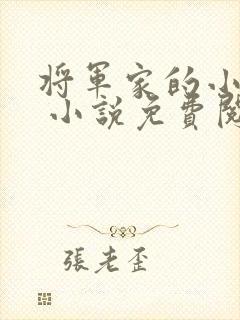 將軍家的小
小說免費閱
張老歪